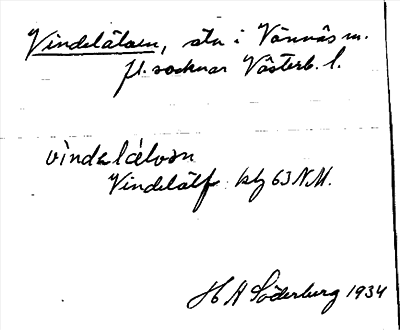 Vindelälven, älv i Vännäs m.
fl. socknar Västerb. l.
vìndəlǽlvən
Vindelälf kbl 63 N.M.
H A Söderburg 1934